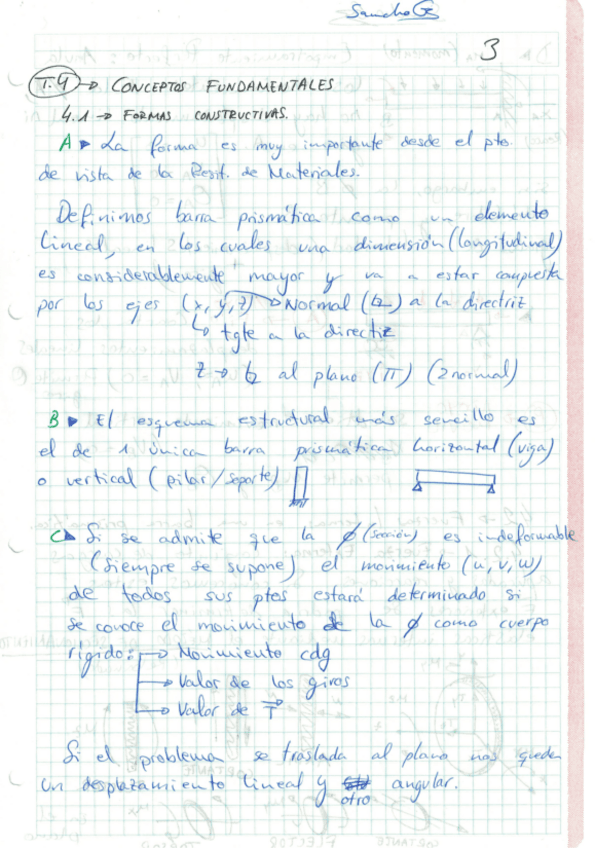 Sancho G
3
T.4 → CONCEPTOS FUNDAMENTALES
4.1 → FORMAS CONSTRUCTIVAS.
A ▸ La forma es muy importante desde el pto.
de vista de la Resist. de Materiales.
Definimos barra prismática como un elemento
lineal, en los cuales una dimensión (longitudinal)
es considerablemente mayor y va a estar compuesta
por los ejes (x, y, z) → Normal (b) a la directriz
↳ tgte a la directiz
z → b al plano (π) (2 normal)
B ▸ El esquema estructural más sencillo es
el de 1 única barra prismática horizontal (viga)
o vertical (pilar/soporte)
C ▸ Si se admite que la ϕ (sección) es indeformable
(Siempre se supone) el movimiento (u, v, w)
de todos sus ptos estará determinado si
se conoce el movimiento de la ϕ como cuerpo
rígido: → Movimiento cdg
→ Valor de los giros
→ Valor de T
Si el problema se traslada al plano nos quedan
un desplazamiento lineal y otro angular.